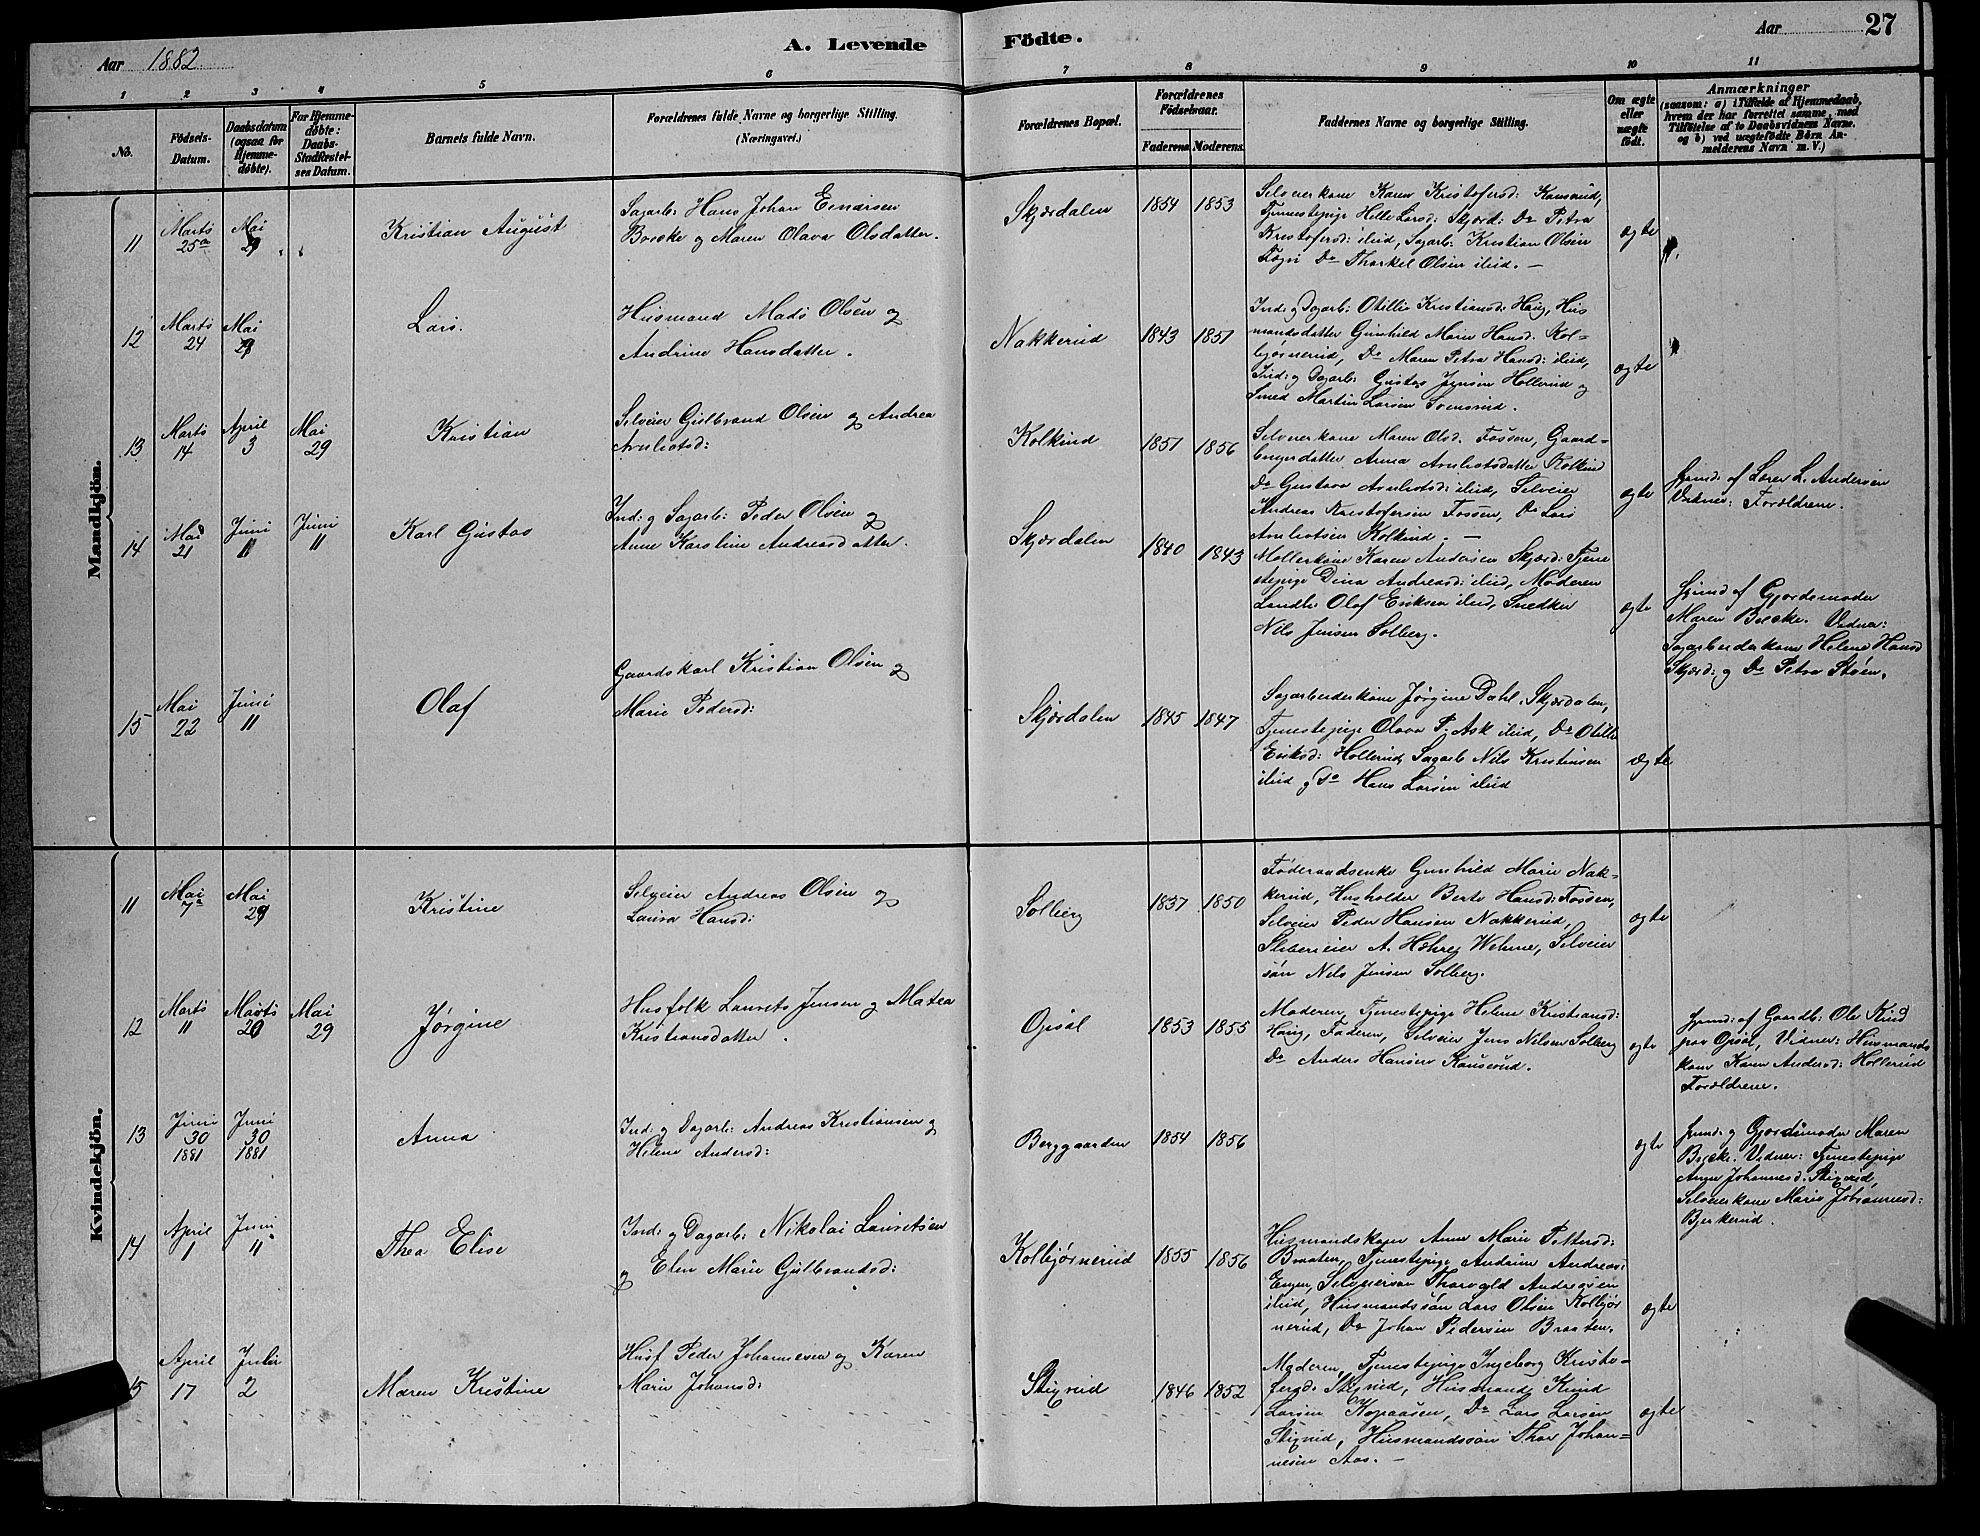 Aar 1882
A. Levende Födte.
Aar 27
1 2 3 4 5 6 7 8 9 10 11
No.
Födsels-
Datum.
Daabsdatum
(ogsaa for
Hjemme-
døbte).
For Hjemme-
døbte:
Daabs-
Stadfæstel-
ses Datum.
Barnets fulde Navn.
Forældrenes fulde Navne og borgerlige Stilling.
(Næringsvei.)
Forældrenes Bopæl.
Forældrenes
Födselsaar.
Faderens Moderens.
Faddernes Navne og borgerlige Stilling.
Om ægte
eller
uægte
født.
Anmærkninger
(saasom: a) i Tilfælde af Hjemmedaab,
hvem der har forrettet samme, med
Tilföielse af to Daabsvidners Navne,
og b) ved uægtefödte Börn An-
melderens Navn m. V.)
Mandkjön.
11
Marts
25
Mai
29
Kristian August
Sagarb: Hans Johan Einarsen
Brecke og Maren Olava Olsdatter.
Skjærdalen
1854 1853
Selveierkone Karen Kristofersd: Kausrud,
Tjenestepige Helle Larsd: Skjærd: Do Petra
Kristofersd: ibid, Sagarb: Kristian Olsen
Do Thorkel Olsen ibid. —
ægte
12
Marts
24
Mai
29
Lars.
Husmand Mads Olsen og
Andrine Hansdatter.
Nakkerud
1843 1851
Ind: g Dagarb: Otillie Kristiansd: Haug, Hus
mandsdatter Gunhild Marie Hansd. Kol=
bjørnerud, Do Maren Petra Hansd: ibid,
Ind: g Dagarb: Gustav Jensen Hollerud og
Smed Martin Larsen Svensrud.
ægte
13
Marts
14
April
3
Mai
29
Kristian
Selveier Gulbrand Olsen og Andrea
Arnliotsd:
Kolkind
1851 1856
Selveierkone Maren Olsd. Fossen, Gaard=
brugerdatter Anna Arnliotsdatter Kolkind
Do Gustava Arnliotsd: ibid, Selveier
Andreas Kristofersen Fossen, Do Lars
Arnliotsen Kolkind. —
ægte
hjemd: af Lærer L. Andersen
Vidner: Forældrene.
14
Mai
21
Juni
11
Juni
11
Karl Gustav
Ind: g Sagarb: Peder Olsen og
Anne Karoline Andreasdatter.
Skjærdalen
1840 1843
Møllerkone Karen Andersen Skjærd: Tjene
stepige Dina Andreasd: ibid, Moderen
Landh: Olaf Eriksen ibid, Snedker
Nils Jensen Solberg.
ægte
hjemd af Gjordemoder
Maren Brecke. Vidner:
Sagarbeiderkone Helene Hansd
Skjærd: g Do Petra Støen.
15
Mai
22
Juni
11
Olaf
Gaardskarl Kristian Olsen og
Marie Pedersd:
Skjærdalen
1845 1847
Sagarbeiderkone Jørgine Dahl, Skjærdalen,
Tjenestepige Olava P. Ask ibid, Do Otillie
Eriksd: Hollerud, Sagarb Nils Kristensen
ibid g Do Hans Larsen ibid
ægte
Kvindekjön.
11
Mai
7
Mai
29
Kristine
Selveier Andreas Olsen og
Laura Hansd:
Solberg
1837 1850
Føderaadsenke Gunhild Marie Nak=
kerud, Husholder Berte Hansd: Fossen,
Selveier Peder Hansen Nakkerud,
Sliberieier A. Hæhre Welme, Selveier
søn Nils Jensen Solberg.
ægte
12
Marts
11
Marts
20
Mai
29
Jørgine
Husfolk Laurits Jensen g Matea
Kristiansdatter.
Opsal
1853 1855
Moderen, Tjenestepige Helene Kristiansd:
Haug, Faderen, Selveier Jens Nilsen Solberg
Do Anders Hansen Kausrud.
ægte
hjemd: af Gaardb: Ole Knud
paa Opsal, Vidner: Husmands
kone Karen Andersd: Hollerud
Forældrene.
13
Juni
30
1881
Juni
30
1881
Anna
Ind: g Dagarb: Andreas Kristiansen g
Helene Andersd:
Berggaarden
1854 1856
ægte
hjemd: g Gjordemoder Maren
Brecke. Vidner: Tjenestepige
Anne Johannesd. Stigrud,
Selveierkone Marie Johannesd:
Bjerkerud.
14
April
1
Juni
11
Thea Elise
Ind: g Dagarb: Nikolai Lauritsen
og Elen Marie Gulbrandsd:
Kolbjørnerud
1855 1856
Husmandskone Anne Marie Pettersd:
Braaten, Tjenestepige Andrine Andreas:
Engen, Selveiersøn Thorvald Andreasen
ibid, Husmandssøn Lars Olsen Kolbjør
nerud, Do Johan Pedersen Braaten.
ægte
15
April
17
Juli
2
Maren Kristine
Husf Peder Johannesen og Karen
Marie Johansd:
Stigrud
1846 1852
Moderen, Tjenestepige Ingeborg Kristo=
fersd. Stigrud, Husmand Knud
Larsen Kopaasen, Do Lars Larsen
Stigrud, Husmandssøn Thor Johan=
nesen Aas. —
ægte